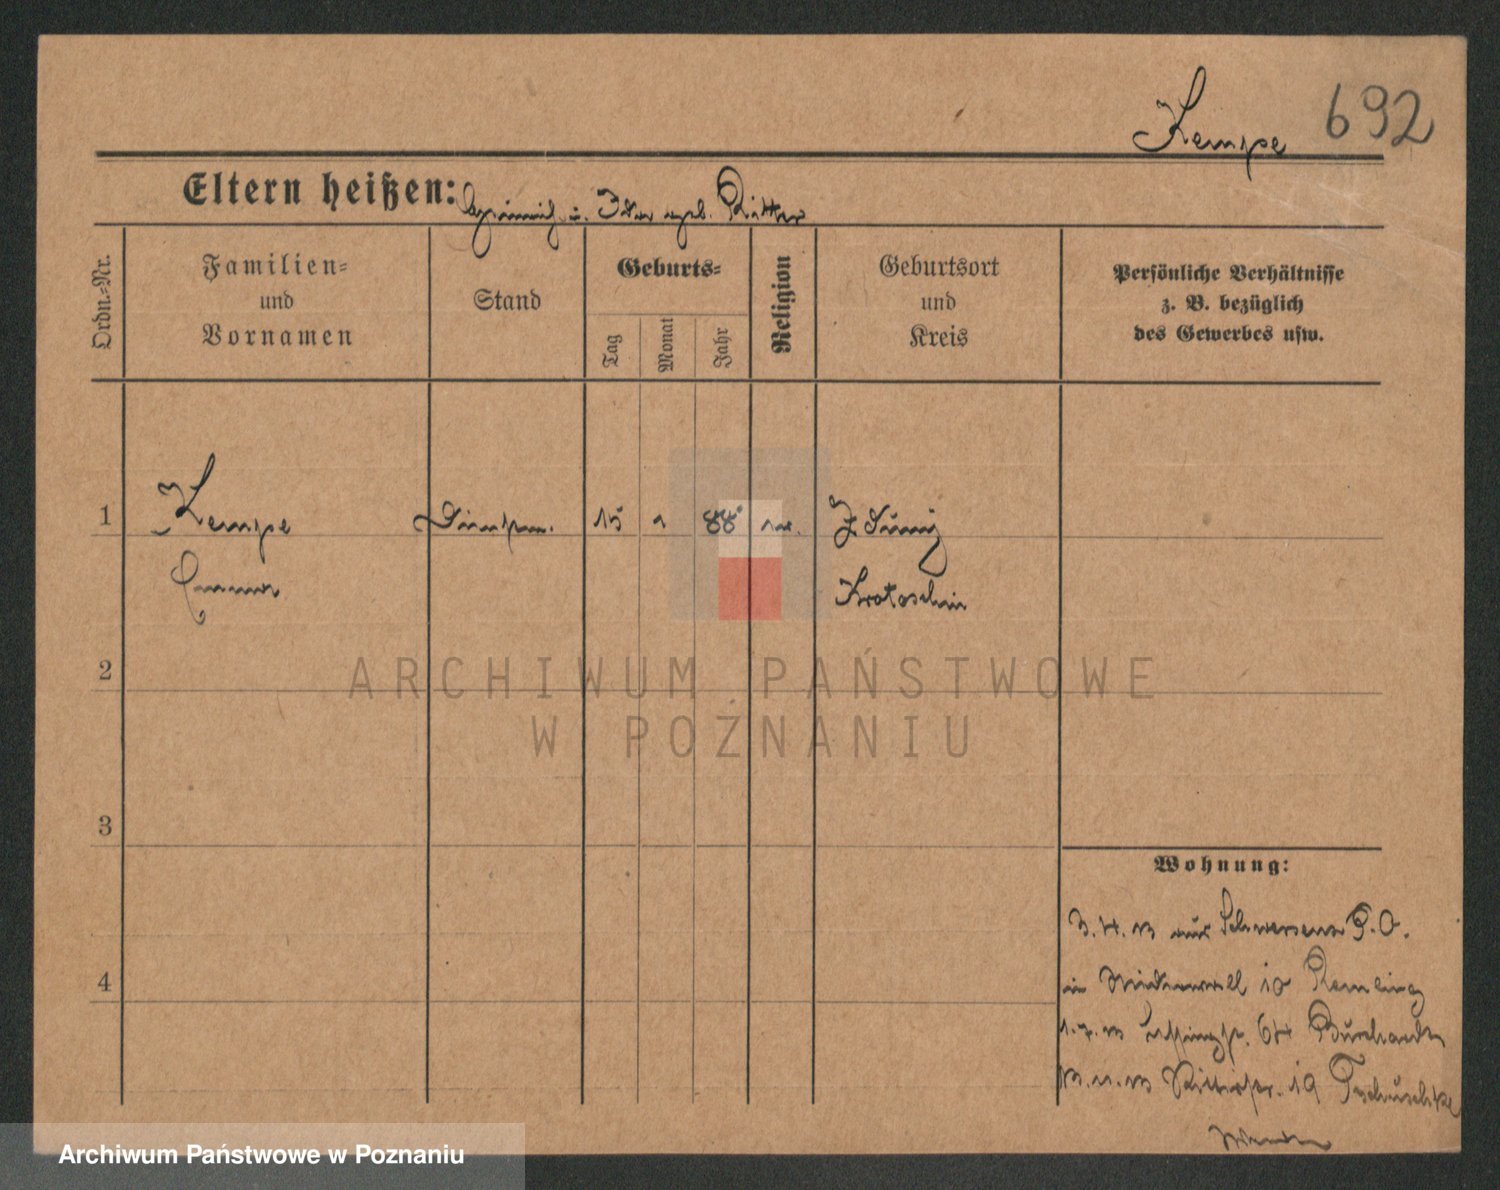 Kempe 692
Eltern heißen: Heinrich u. Ida geb. Ritter
Ordn.-Nr.
Familien-
und
Vornamen
Stand
Geburts-
Tag
Monat
Jahr
Religion
Geburtsort
und
Kreis
Persönliche Verhältnisse
z. B. bezüglich
des Gewerbes usw.
1 Kempe 15 1 88 ev. Zduny
Emma Krotoschin
2
3
4
Wohnung:
3.4.13 aus Schwersenz P.O.
in 10
1.7.13 64 Burchardt
19 Tschuschke
ARCHIWUM PAŃSTWOWE
W POZNANIU
Archiwum Państwowe w Poznaniu